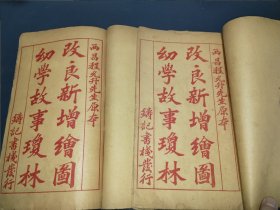 西昌程允升先生原本
改良新增繪圖
幼學故事瓊林
鑄記書棧發行
西昌程允升先生原本
改良新增繪圖
幼學故事瓊林
鑄記書棧發行